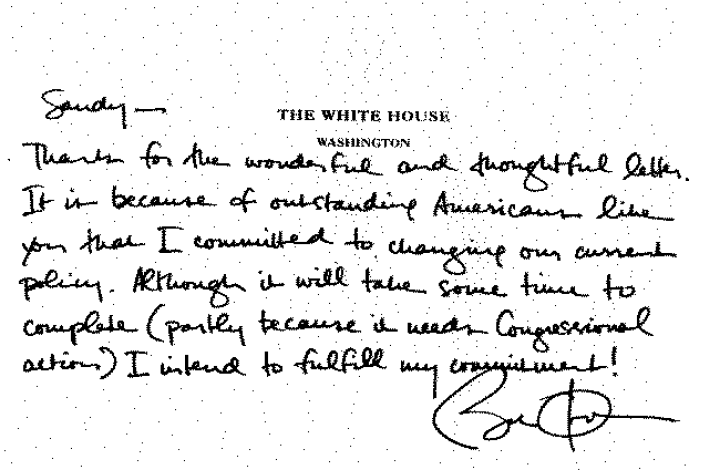 Sandy—
THE WHITE HOUSE
WASHINGTON
Thanks for the wonderful and thoughtful letter.
It is because of outstanding Americans like
you that I committed to changing our current
policy. Although it will take some time to
complete (partly because it needs Congressional
action) I intend to fulfill my commitment!